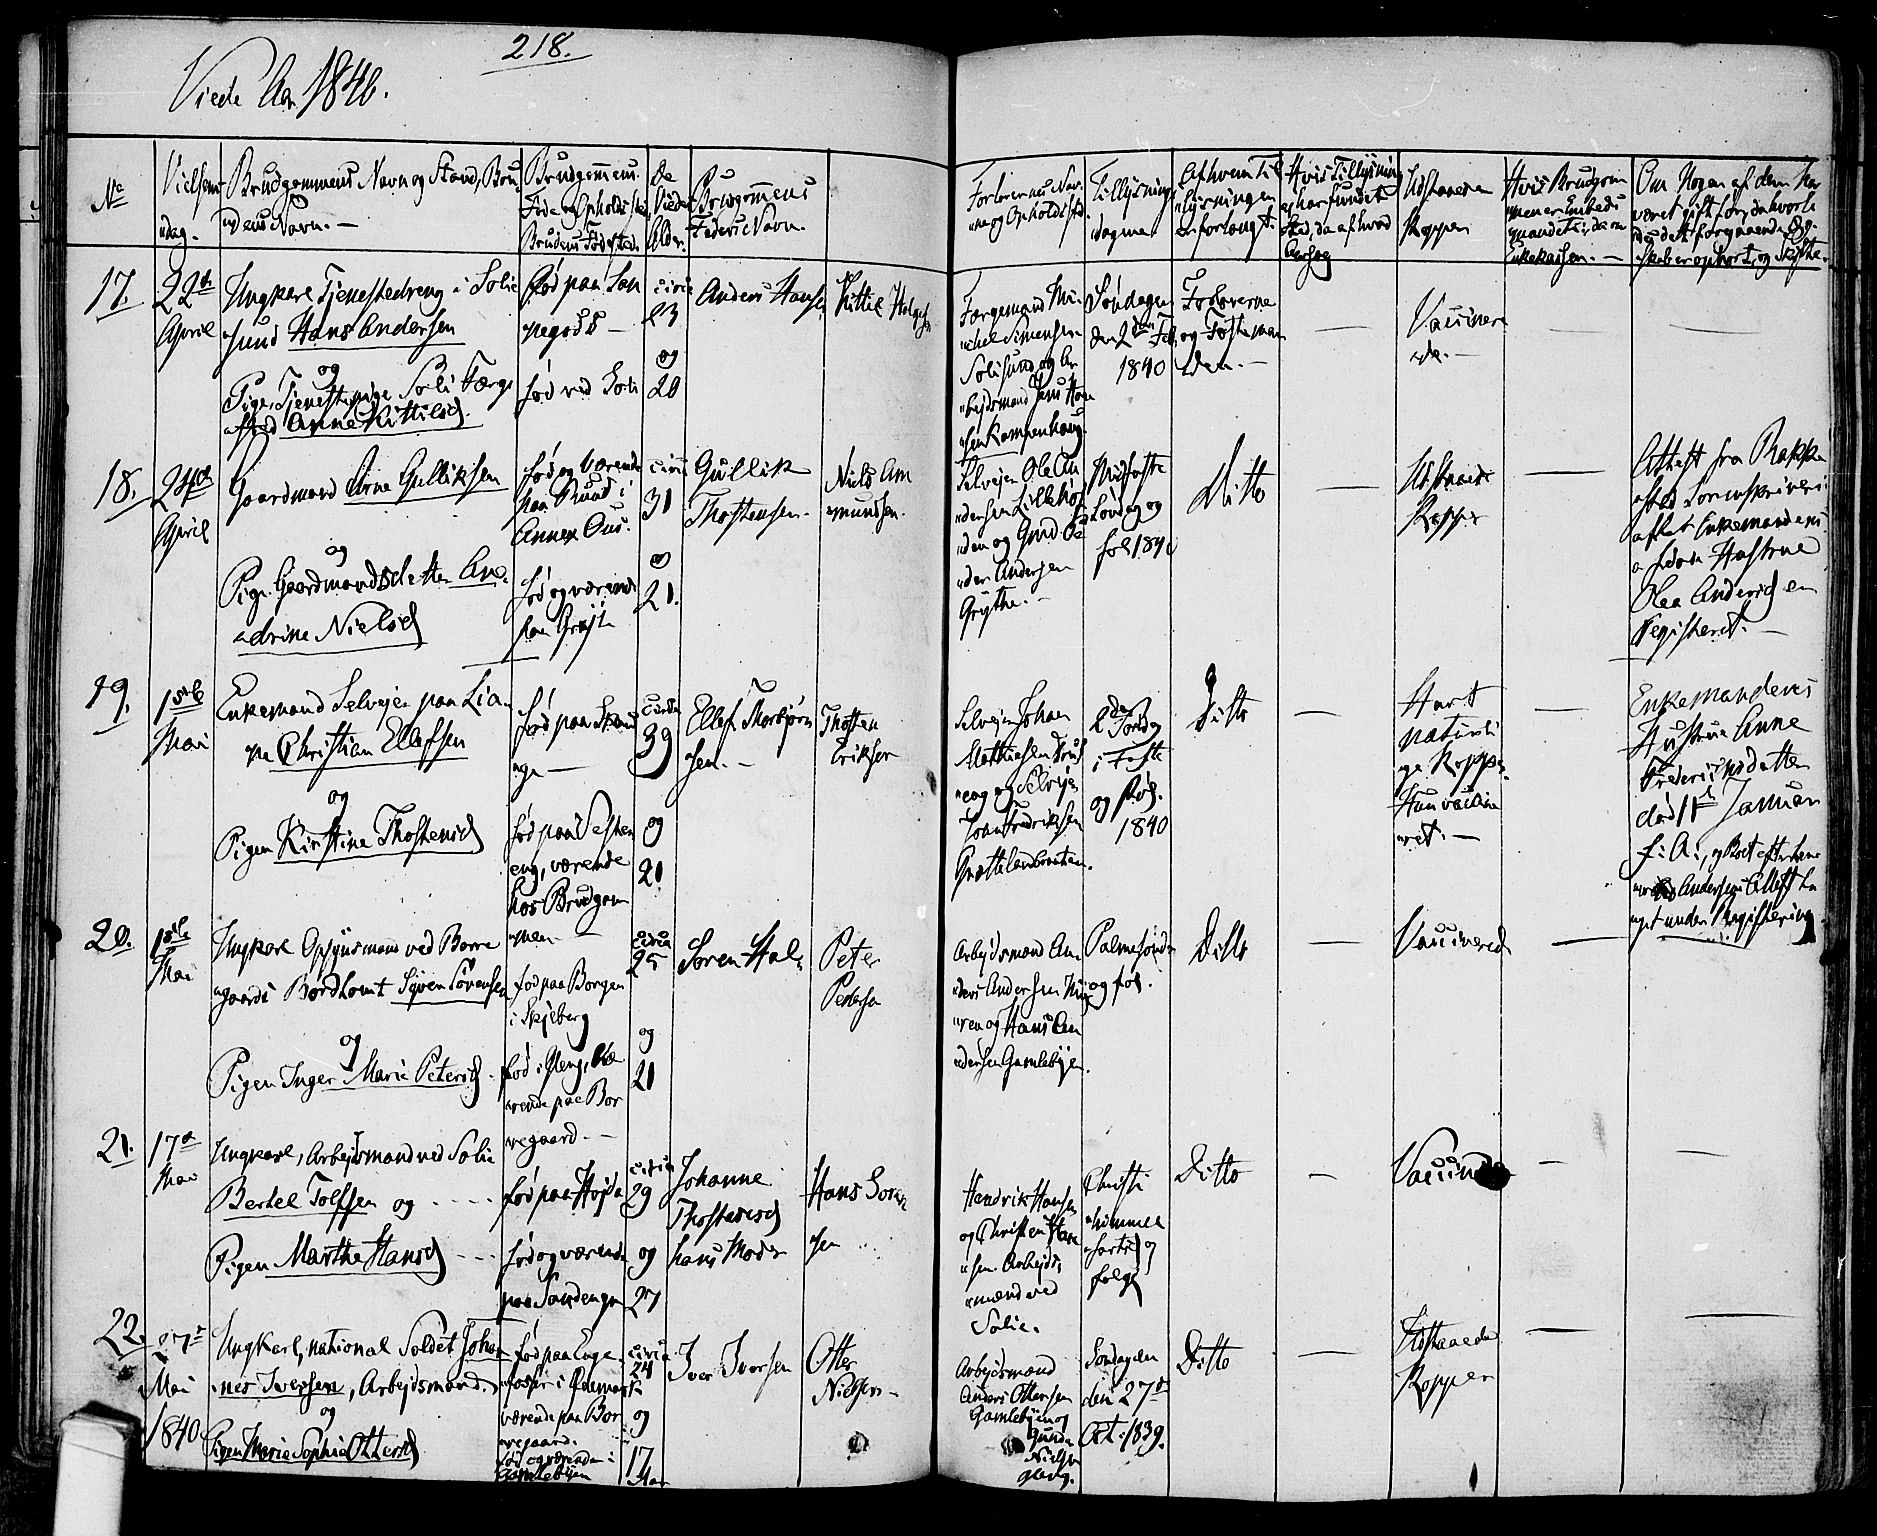 218.
Viede Aar 1840.
No
Vielsens
dag.
Brudgommens Navn og Stand, Bru
dens Navn.
Brudgommens
Føde og Opholdssted
Brudens Fødested.
De
Viedes
Alder.
Brudgommens
Faders Navn.
Forlovernes Nav
ne og Opholdssted
Tillysnings
dagene
Af hvem Til
lysningen
er forlangt.
Hvis Tillysning
ej har fundet
Sted, da af hvad
Aarsag
Udstandne
Kopper
Hvis Brudgom
men er Embeds
mand
Enkekassen.
Om Nogen af dem har
været gift før, da hvorle
des det forgaaende Æg
teskab er ophørt, og Skifte.
17.
22de
April
Ungkarl Tjenestedreng i Solie
sund Hans Andersen
og
Pige, Tjenestepige Soli Færge
sted Anne Kittilsd.
fød paa San
negods
fød ved Soli
circa
23
og
20
Anders Hansen
Kittil Helgesen
Færgemand Mi
chel Simensen
Solisund og Ar
bejdsmand Jens Han
sen Kampenhaug.
Søndagen
den 2den Feb.
1840
Forloverne
og Fæsteman
den.
Vaccinere
de.
18.
24de
April
Gaardmand Arne Gulliksen
og
Pige Gaardmandsdatter An
drine Nielsd
fød og værende
paa Ruud i
Annex Ous.
fød og værende
paa Gryt
circa
31
og
21.
Gullik
Thostensen.
Niels Am
mundsen.
Selvejer Ole An
dersen Lillehøl
den og Gmd. Pe
der Andersen
Grythe.
Midfaste
Søndag og
føl 1840
Ditto
Udstandne
Kopper
Attest fra Rakke
stad Sorenskriveri
at Enkemandens
afdøde Hustrue
Olea Andersd er
registeret.
19.
1ste
Mai
Enkemand Selvejer paa Lia
ne Christian Ellefsen
og
Pigen Kirstine Thostensd
fød paa
fød paa Vesten
eng, værende
hos Brudgom
men
circa
39
og
21
Ellef Thorbjørn
sen.
Thosten
Eriksen
Selvejer Johan
Matthiesen
og Selvejer
Johan Fredriksen
Grøttelandbraaten.
2den Søndag
i Faste
og føl.
1840
Ditto
Havt
naturli
ge Kopper.
Hun vaccine
ret.
Enkemandens
Hustrue Anne
Frederiksdatter
død 11te Januar
f. A.
Andersens Attest ta
get under Registering
20.
1ste
Mai
Ungkarl Opsynsmand ved Borre
gaards Bordtomt Syver Sørensen
og
Pigen Inger Marie Petersd.
fød paa Borgen
i Skjeberg
fød i Gleng, væ
rende paa Bor
regaard.
circa
25
og
21
Søren Hals
Peter
Pedersen
Arbejdsmand An
ders Andersen
og Hans An
dersen Gamlebyen.
Palmesønd
og føl.
Ditto
Vaccinered
21.
17de
Mai
Ungkarl, Arbejdsmand ved Solie
Bertel Tolfsen og
Pigen Marthe Hansd
fød paa Højda
fød og værende
paa Sandengen
circa
29
og
27
Johanne
Thostensd
hans Moder
Hans Soren
sen
Hendrik Hansen
og Christen Han
sen Arbejds
mænd ved
Solie.
Christi
himmel
fartsd og
følge
Ditto
Vaccinede
22.
27de
Mai
1840
Ungkarl, national Soldat Johan
nes Iversen, Arbejdsmand.
og
Pigen Marie Sophie Ottersd
fød paa Enge
i Ødemark
værende paa Bor
regaard.
fød og værende i
Gamlebyen
circa
24
og
17
Aar
Iver Iversen
Otter
Nielsen
Arbejdsmand
Anders Ottersen
Gamlebyen og
Gunder
Nielsen
Gleng.
Søndagen
den 27de
Oct. 1839.
Ditto
Udstandne
Kopper